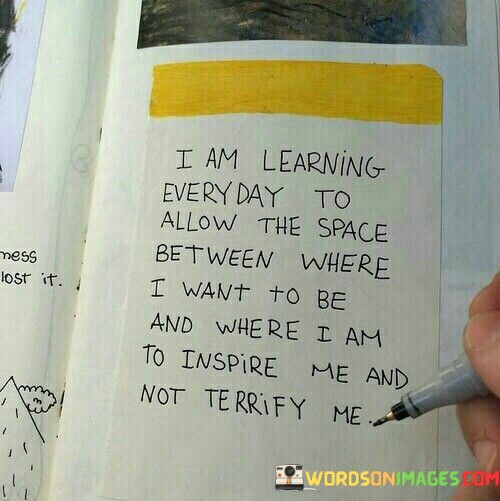 I AM LEARNING
EVERYDAY TO
ALLOW THE SPACE
BETWEEN WHERE
I WANT TO BE
AND WHERE I AM
TO INSPIRE ME AND
NOT TERRIFY ME.
lost it.
WORDSONIMAGES.COM